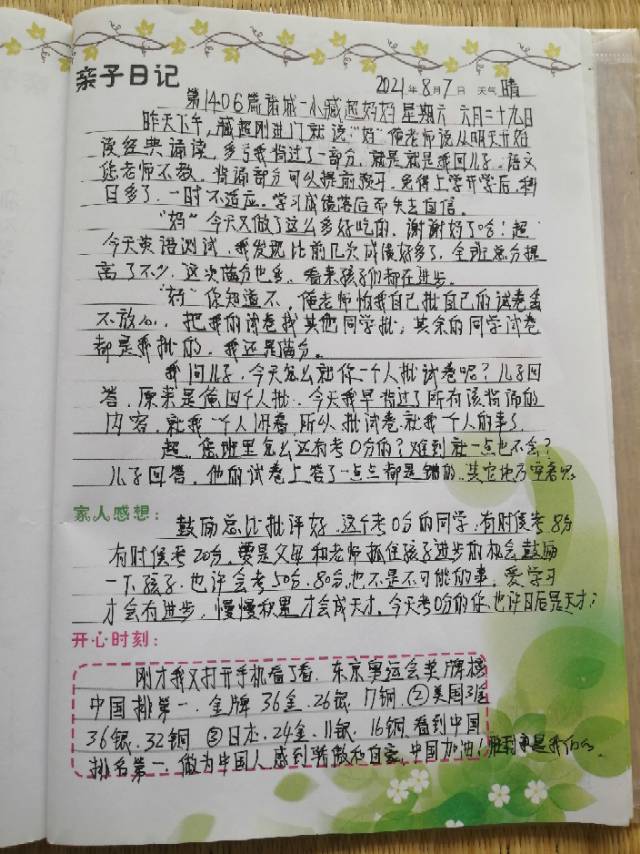 亲子日记
2021年8月7日 天气 晴
第1406篇 诸城一小臧超妈妈 星期六 六月二十九日
昨天下午,臧超刚进门就说:"妈"俺老师说从明天开始
读经典诵读,多亏我背过了一部分,就是就是我回儿子:语文
您老师不教,背诵部分可以提前预习,免得上学开学后,科
目多了,一时不适应,学习成绩落后而失去自信。
"妈"今天又做了这么多好吃的,谢谢好了哈!超
今天英语测试,我发现比前几次成绩好多了,全班总分提
高了不少,这次满分也多,看来孩子们都在进步。
"妈"你知道不,俺老师怕我自己批自己的试卷丢
不放心,把我的试卷找其他同学批,其余的同学试卷
都是我批的,我还是满分。
我问儿子,今天怎么就你一个人批试卷呢?儿子回
答,原来是俺四个人批,今天我早背过了所有该背诵的
内容,就我一个人闲着,所以批试卷就我一个人的事了
超,您班里怎么还有考0分的?难到就一点也不会?
儿子回答,他的试卷上答了一点点都是错的,其它地方空着
家人感想:
鼓励总比批评好,这个考0分的同学,有时侯考8分
有时侯考20分,要是父母和老师抓住孩子进步的机会鼓励
一下孩子,也许会考50分,80分,也不是不可能的事,爱学习
才会有进步,慢慢积累,才会成天才,今天考0分的你,也许日后是天才!
开心时刻:
刚才我又打开手机看了看,东京奥运会奖牌榜
中国排第一,金牌36金,26银,17铜,②美国31金
36银,32铜 ③日本,24金,11银,16铜,看到中国
排名第一,做为中国人感到骄傲和自豪,中国加油!胜利是我们的。